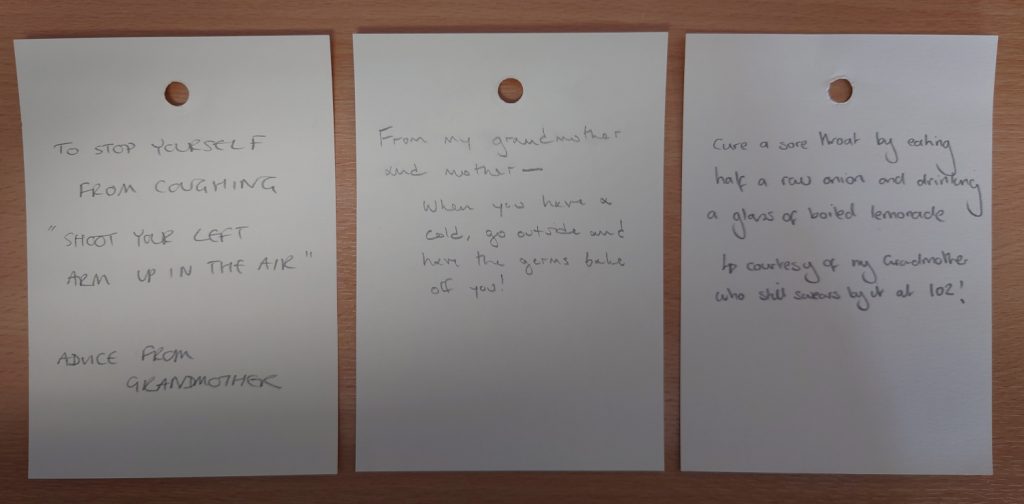 TO STOP YOURSELF
FROM COUGHING
"SHOOT YOUR LEFT
ARM UP IN THE AIR"
ADVICE FROM
GRANDMOTHER
From my grandmother
and mother—
When you have a
cold, go outside and
have the germs bake
off you!
Cure a sore throat by eating
half a raw onion and drinking
a glass of boiled lemonade
↳ courtesy of my Grandmother
who still swears by it at 102!